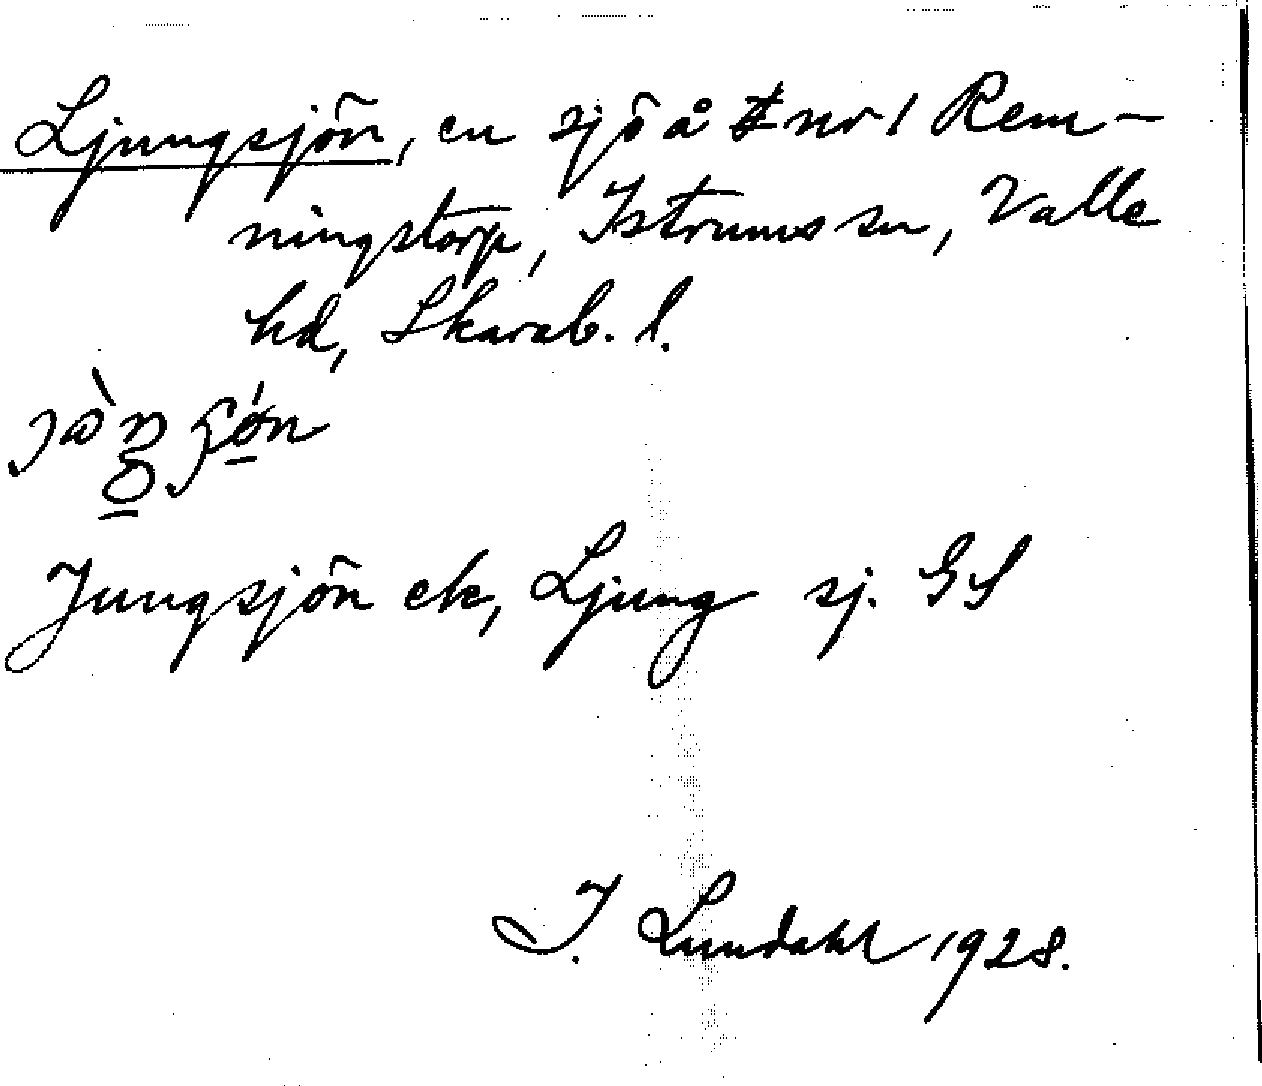 Ljungsjön, en sjö å nr 1 Rem-
ningstorp, Istrums sn, Valle
hd, Skarab. l.
Jungsjön ek, Ljung sj. GS
I. Lundahl 1928.